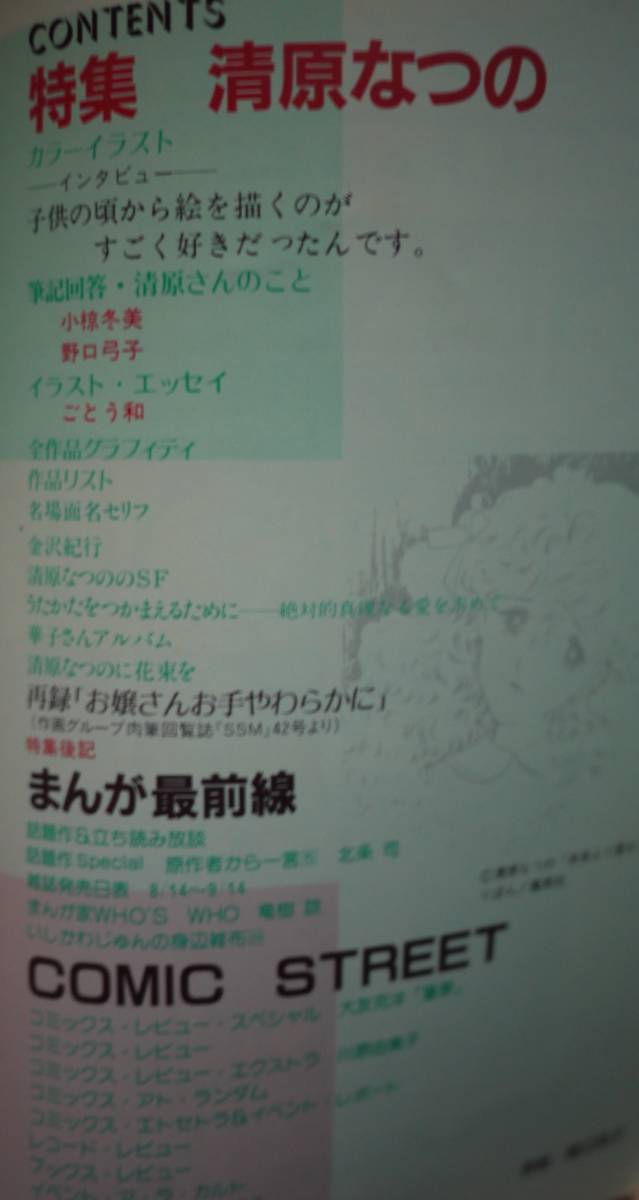 CONTENTS
特集 清原なつの
カラーイラスト
──インタビュー──
子供の頃から絵を描くのが
すごく好きだったんです。
筆記回答・清原さんのこと
小椋冬美
野口弓子
イラスト・エッセイ
ごとう和
全作品グラフィティ
作品リスト
名場面名セリフ
金沢紀行
清原なつののSF
うたかたをつかまえるために──絶対的真理なる愛を求めて
華子さんアルバム
清原なつのに花束を
再録「お嬢さんお手やわらかに」
(作画グループ肉筆回覧誌「SSM」42号より)
特集後記
まんが最前線
話題作&立ち読み放談
話題作Special 原作者から一言 北条 司
雑誌発売日表 8/14〜9/14
まんが家WHO'S WHO 竜樹 諒
いしかわじゅんの身辺雑布
COMIC STREET
コミックス・レビュー・スペシャル 大友克洋「童夢」
コミックス・レビュー
コミックス・レビュー・エクストラ
コミックス・アト・ランダム
コミックス・エトセトラ&イベント・レポート
レコード・レビュー
ブックス・レビュー
イベント・ア・ラ・カルト